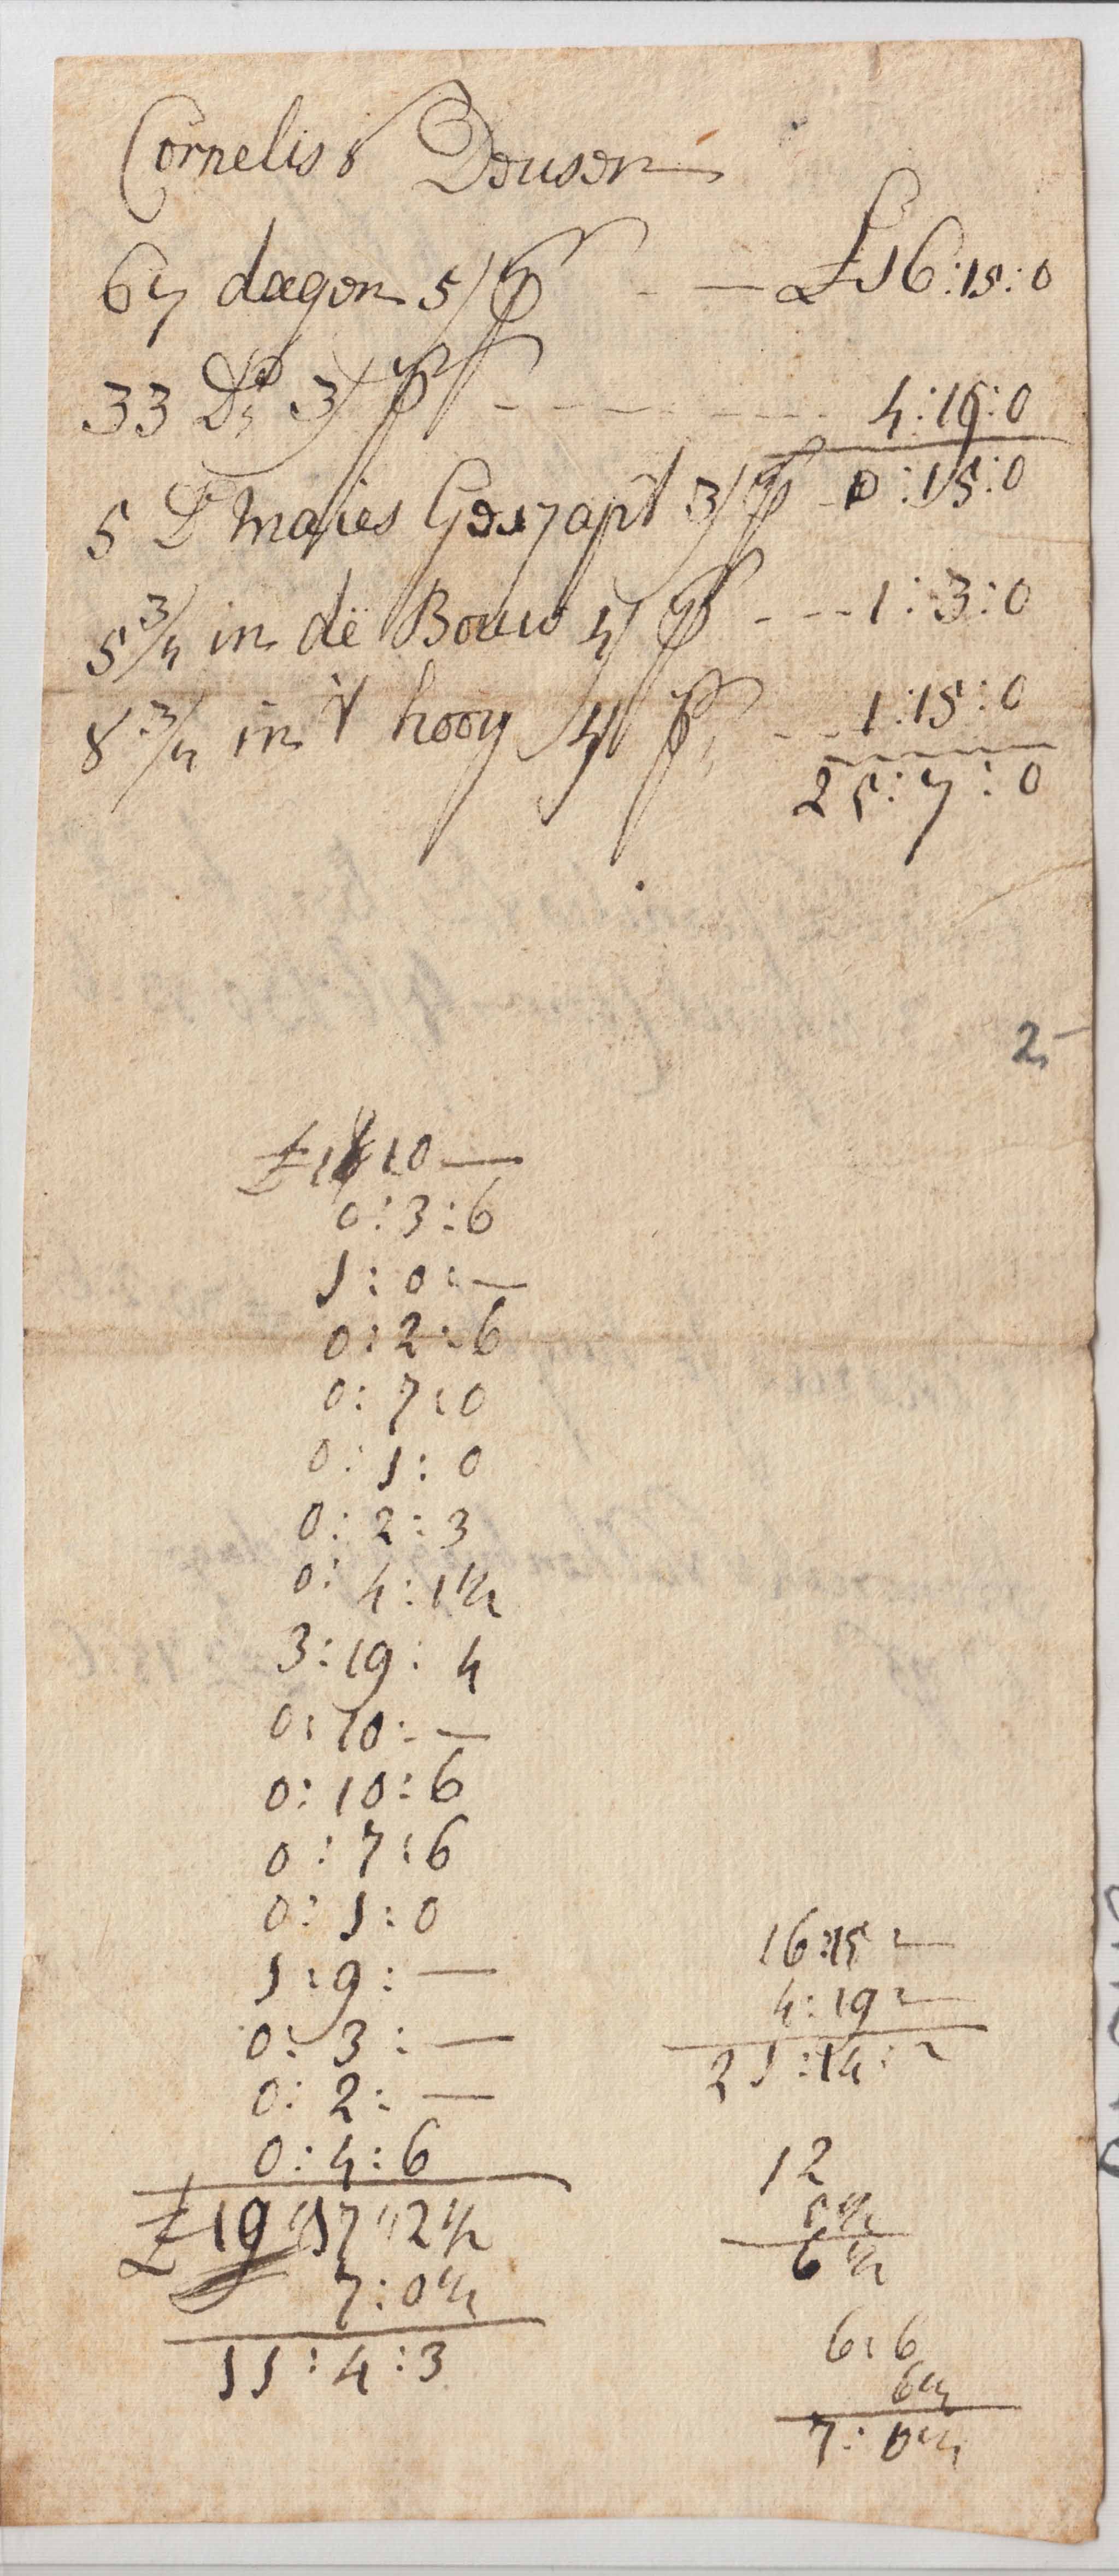 Cornelis Dousen
67 dagen 5/ ℔ - — £16:15:0
33 D° 3/ ℔ - - - - 4:19:0
5 D° maies 3/ ℔ - 0:15:0
5 3/4 in de Bouw 4/ ℔ - - - 1:3:0
8 3/4 in 't hooy 4/ ℔ - - - 1:15:0
25:7:0
2,-
10 —
0:3:6
1:0:—
0:2:6
0:7:0
0:1:0
0:2:3
0:4:1½
3:19:4
0:10:—
0:10:6
0:7:6
0:1:0
1:9:—
0:3:—
0:2:—
0:4:6
£19 17 2½
7:0½
11:4:3
16:15 —
4:19 —
21:14:
12
6½
6:6
7:0½